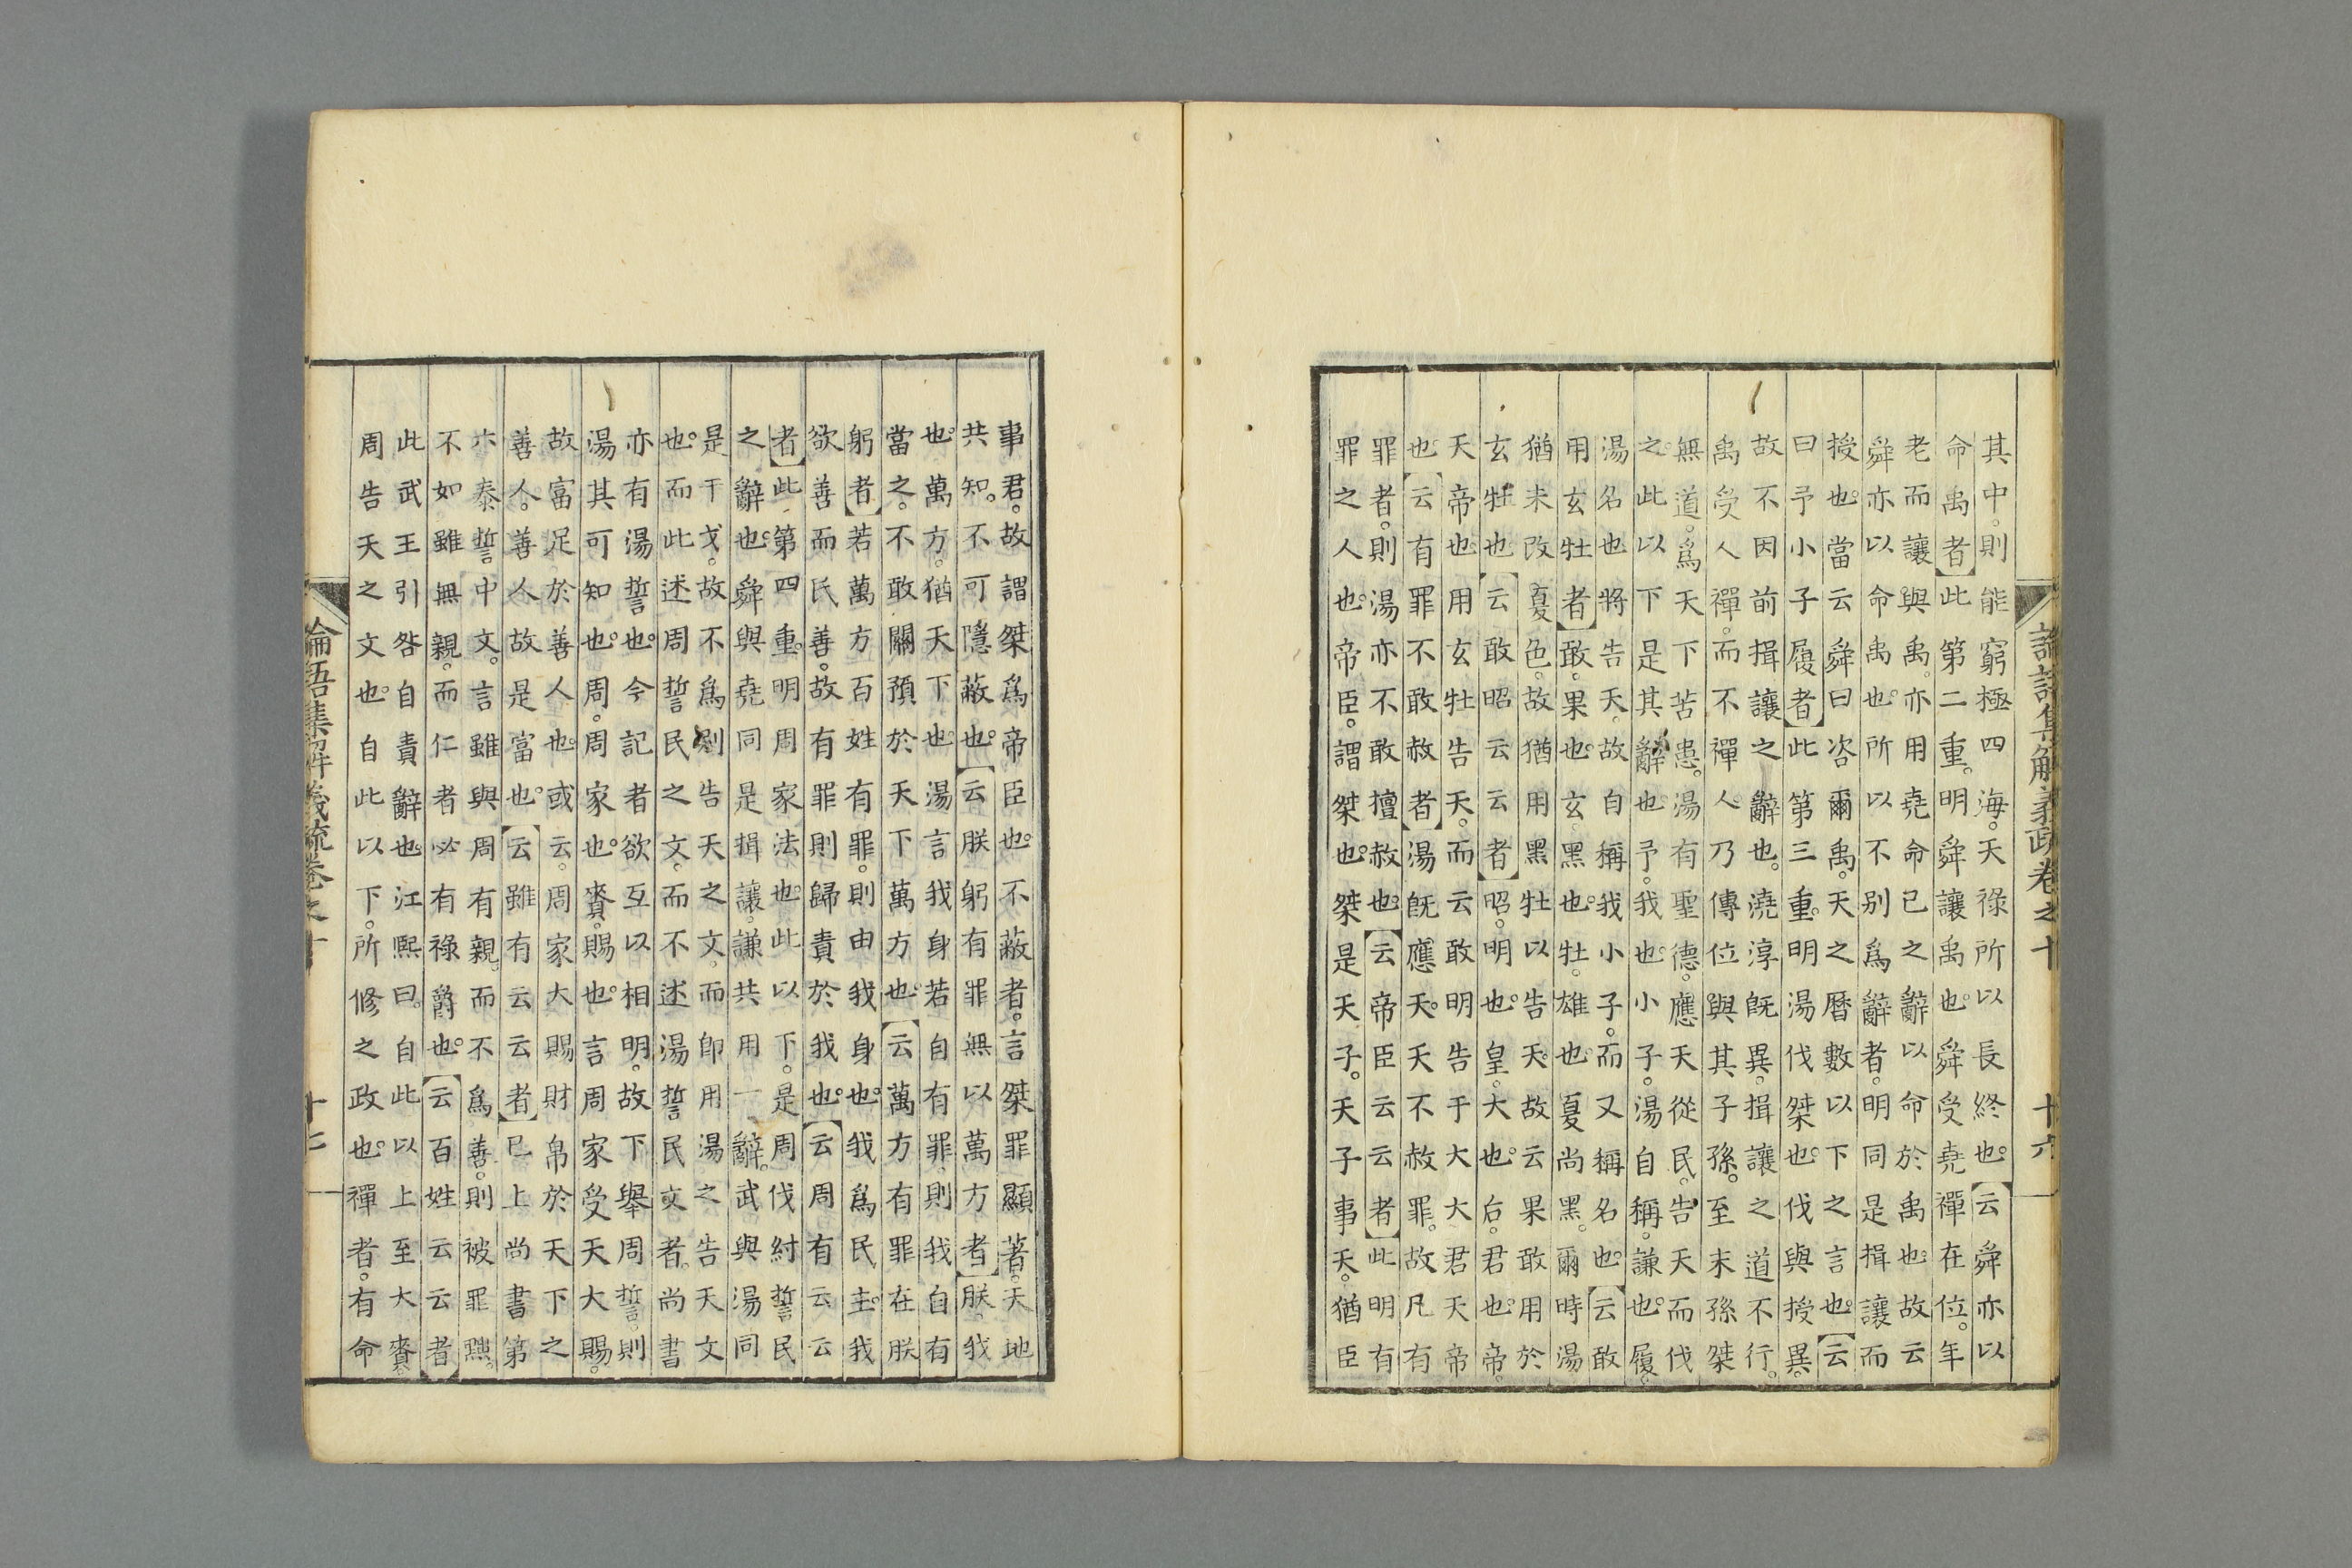 論語集解義疏卷之十 十六
其中。則能窮極四海。天祿所以長終也。云舜亦以
命禹者此第二重。明舜讓禹也。舜受堯禪在位。年
老而讓與禹。亦用堯命已之辭以命於禹也。故云
舜亦以命禹也。所以不別爲辭者。明同是揖讓而
授也。當云舜曰咨爾禹。天之曆數以下之言也。云
曰予小子履者此第三重。明湯伐桀也。伐與授異。
故不因前揖讓之辭也。澆淳旣異。揖讓之道不行。
禹受人禪。而不禪人乃傳位與其子孫。至末孫桀
無道。爲天下苦患。湯有聖德。應天從民。告天而伐
之。此以下是其辭也。予。我也。小子。湯自稱。謙也。履。
湯名也將告天。故自稱我小子。而又稱名也。云敢
用玄牡者敢。果也。玄黑也。牡。雄也。夏尚黑。爾時湯
猶未改夏色。故猶用黑牡以告天。故云果敢用於
玄牡也云敢昭云云者昭。明也。皇。大也。后。君也。帝。
天帝也。用玄牡告天。而云敢明告于大大君天帝
也云有罪不敢赦者湯旣應天。天不赦罪。故凡有
罪者。則湯亦不敢擅赦也。云帝臣云云者此明有
罪之人也。帝臣。謂桀也。桀是天子。天子事天。猶臣
事君。故謂桀爲帝臣也。不蔽者。言桀罪顯著。天地
共知。不可隱蔽也。云朕躬有罪無以萬方者朕。我
也。萬方。猶天下也。湯言我身若自有罪。則我自有
當之。不敢關預於天下萬方也。云萬方有罪在朕
躬者若萬方百姓有罪。則由我身也。我爲民主。我
欲善而民善。故有罪則歸責於我也。云周有云云
者此第四重。明周家法也。此以下。是周伐紂誓民
之辭也。舜與堯同是揖讓。謙共用一辭。武與湯同
是干戈。故不爲別告天之文。而卽用湯之告天文
也。而此述周誓民之文。而不述湯誓民文者。尚書
亦有湯誓也。今記者欲互以相明。故下舉周誓。則
湯其可知也。周。周家也。賚。賜也。言周家受天大賜。
故富足於善人也。或云。周家大賜財帛於天下之
善人。善人故是富也。云雖有云云者已上尚書第
六泰誓中文。言雖與周有親。而不爲善。則被罪黜。
不如雖無親。而仁者必有祿爵也。云百姓云云者
此武王引咎自責辭也。江熙曰。自此以上至大賚
周告天之文也。自此以下。所修之政也。禪者。有命
論語集解義疏卷之十 十七